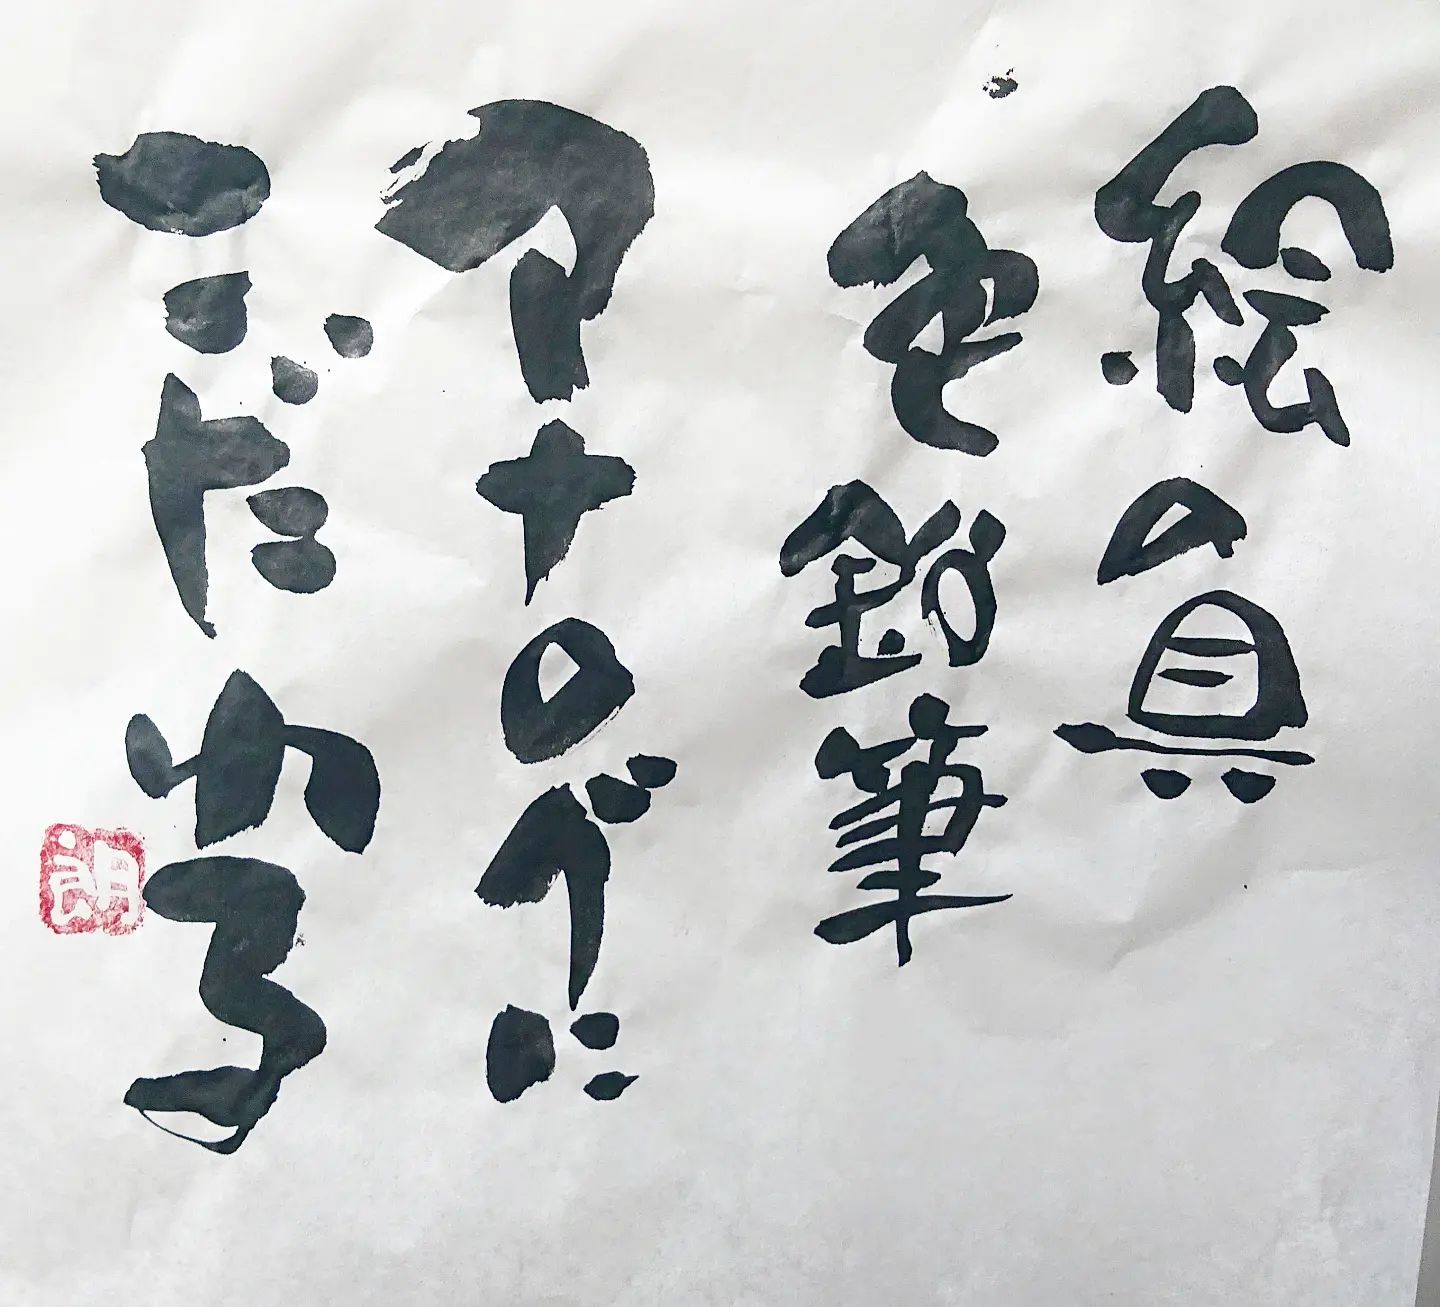 絵の具
色鉛筆
アナログに
こだわる
朗